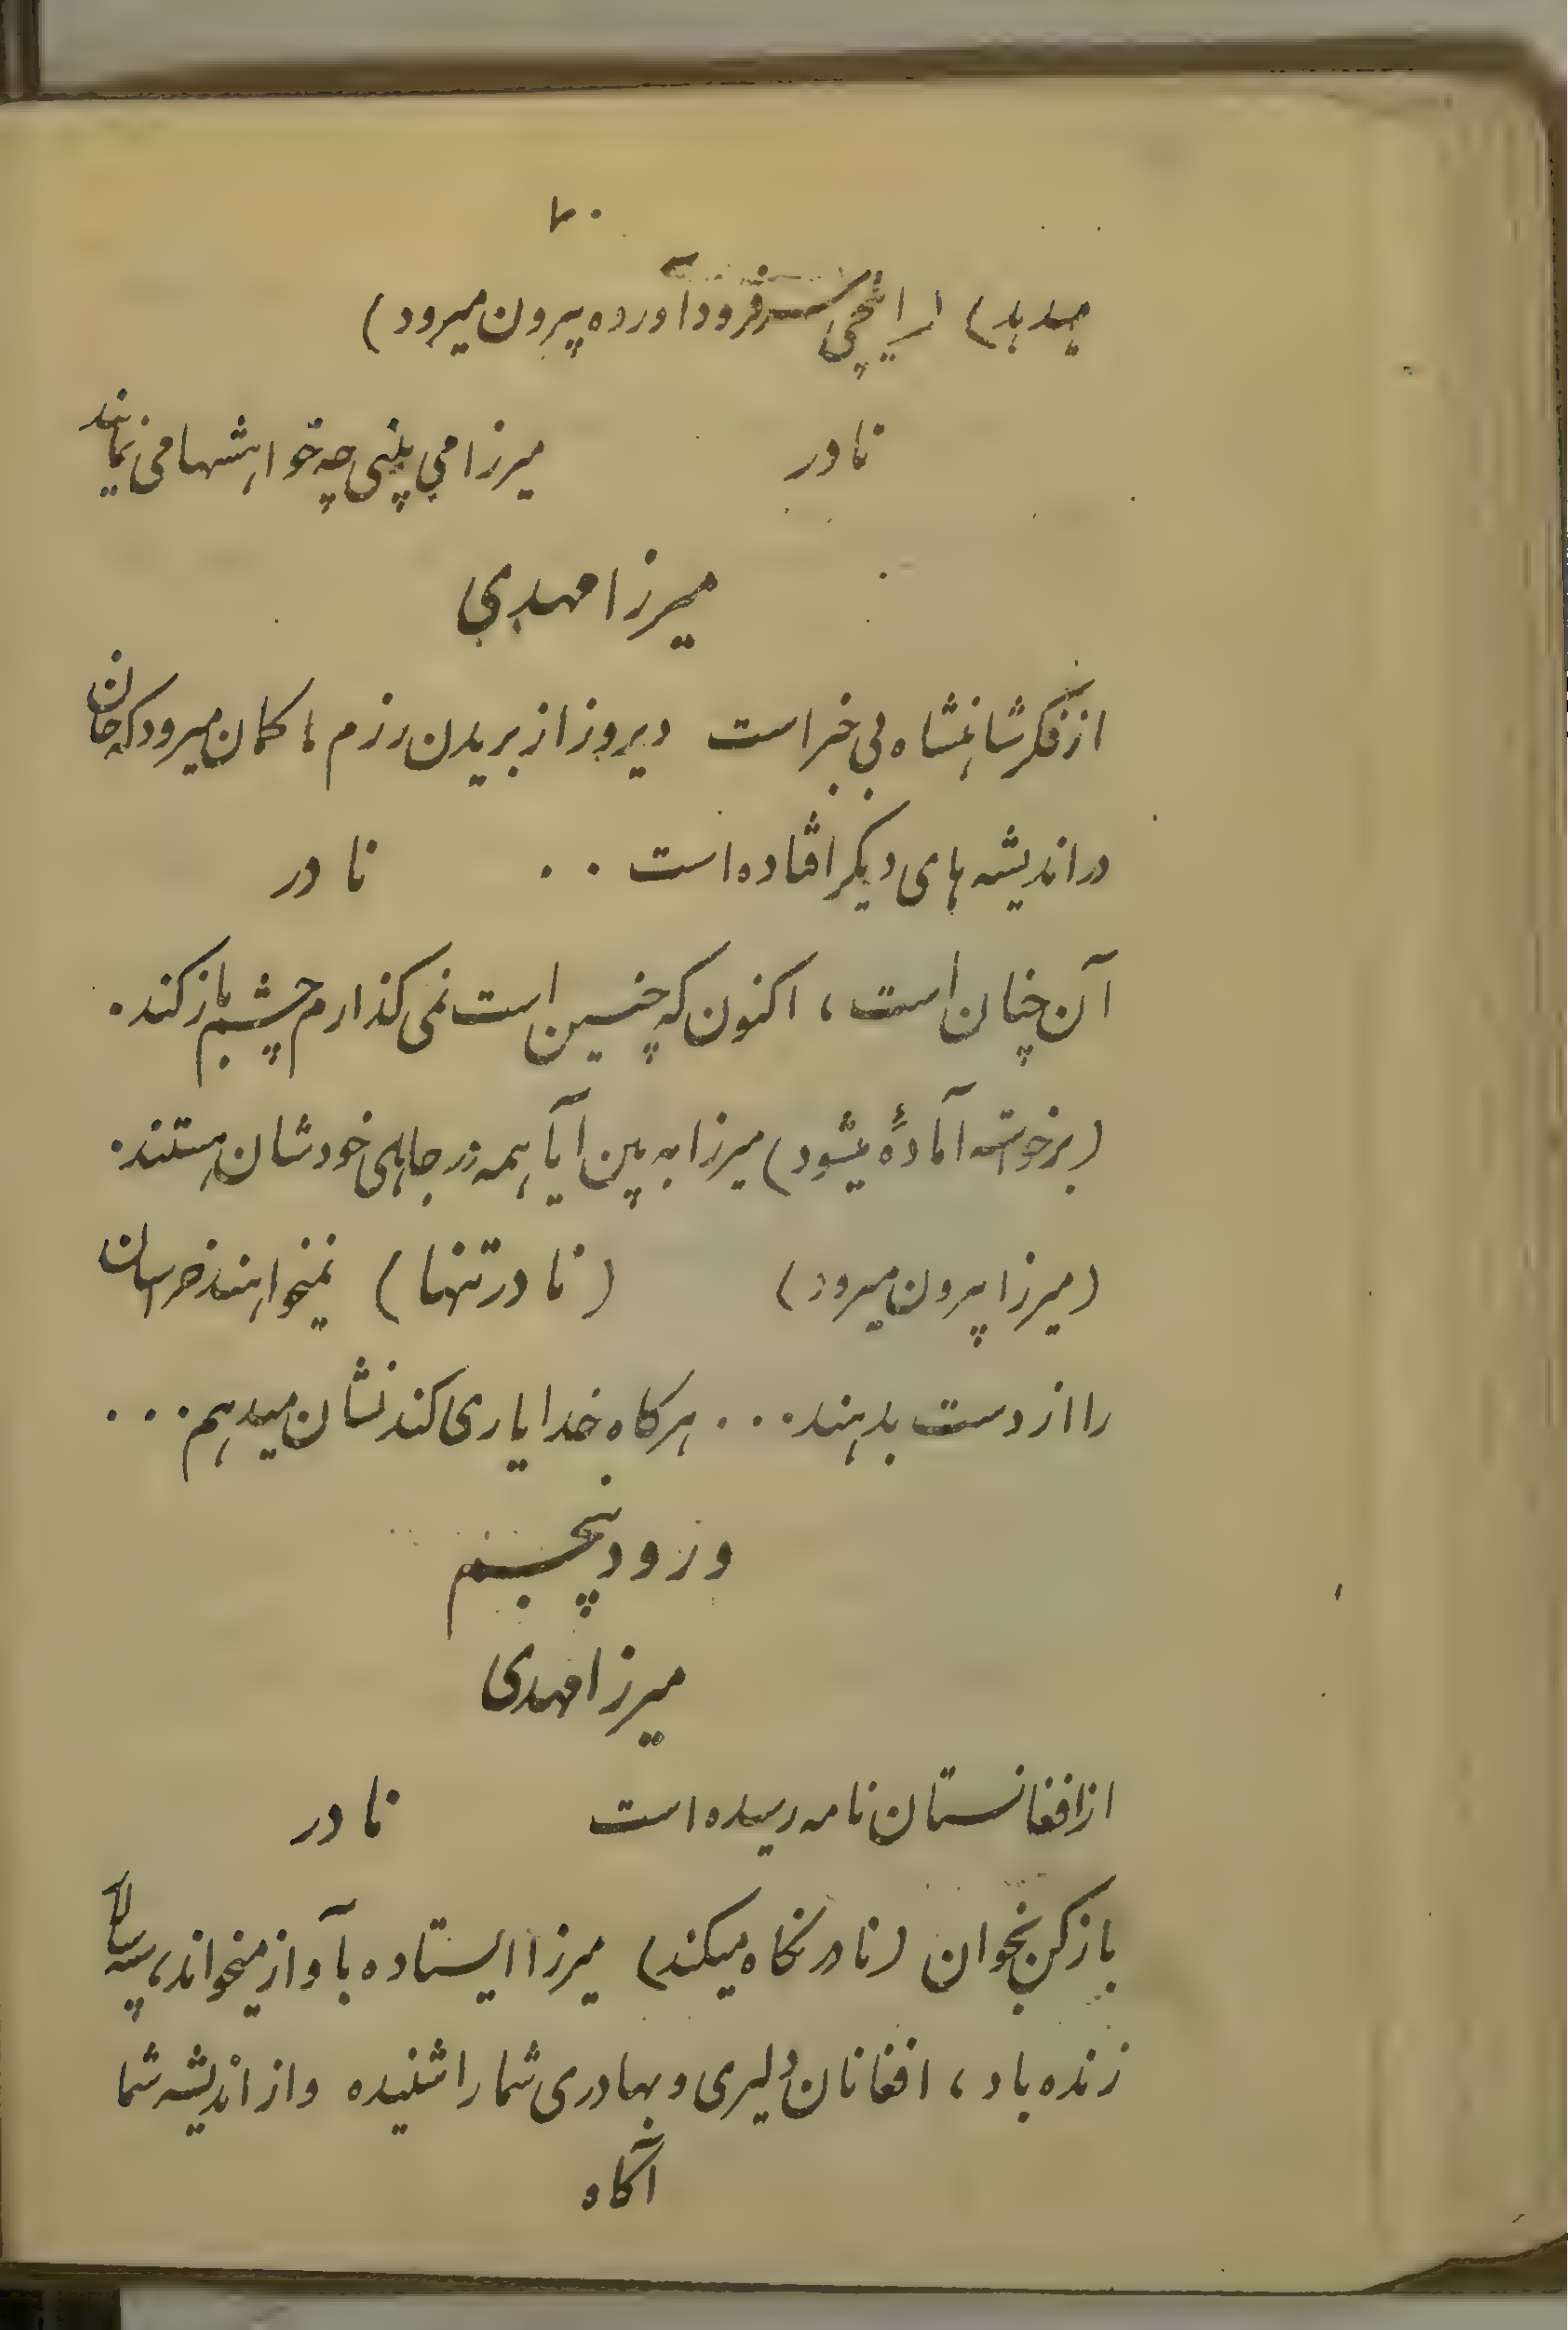 ۲۰
میدهد) (ایلچی سر فرود آورده بیرون میرود)
نادر میرزا می بینی چه خواهشها می نمایند
میرزا مهدی
از فکر شاهنشاه بی خبر است دیروز از بریدن رزم ما کمان میرود که خان
در اندیشه های دیکر افتاده است ۰ ۰ نادر
آن چنان است، اکنون که چنین است نمی کذارم چشم باز کند۰
(برخوسته آماده میشود) میرزا به بین آیا همه در جاهای خودشان هستند۰
(میرزا بیرون میرود) (نادر تنها) نمیخواهند خراسان
را از دست بدهند۰۰۰ هرکاه خدا یاری کند نشان میدهم۰۰۰
ورود پنجم
میرزا مهدی
از افغانستان نامه رسیده است نادر
باز کن بخوان (نادر نکاه میکند) میرزا ایستاده بآواز میخواند، سپهسالار
زنده باد، افغانان دلیری و بهادری شما را شنیده و از اندیشه شما
آکاه